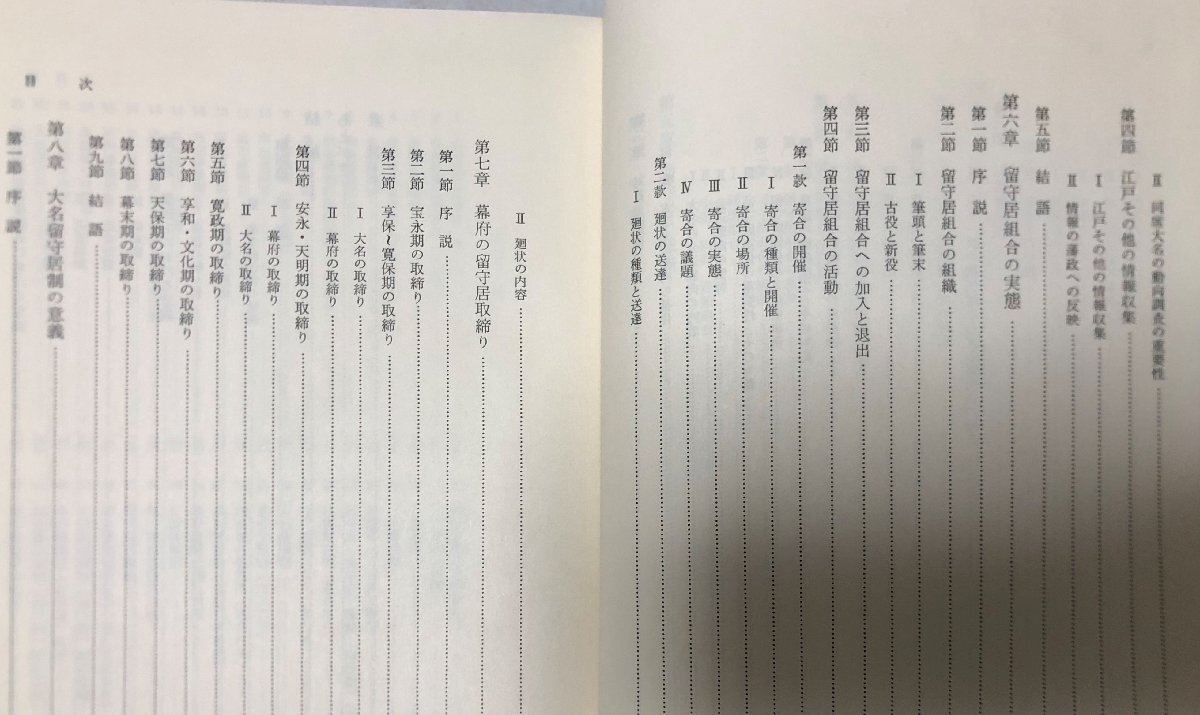 Ⅱ 同席大名の動向調査の重要性
第四節 江戸その他の情報収集
Ⅰ 江戸その他の情報収集
Ⅱ 情報の藩政への反映
第五節 結語
第六章 留守居組合の実態
第一節 序説
第二節 留守居組合の組織
Ⅰ 筆頭と筆末
Ⅱ 古役と新役
第三節 留守居組合への加入と退出
第四節 留守居組合の活動
第一款 寄合の開催
Ⅰ 寄合の種類と開催
Ⅱ 寄合の場所
Ⅲ 寄合の実態
Ⅳ 寄合の議題
第二款 廻状の送達
Ⅰ 廻状の種類と送達
Ⅱ 廻状の内容
第七章 幕府の留守居取締り
第一節 序説
第二節 宝永期の取締り
第三節 享保~寛保期の取締り
Ⅰ 大名の取締り
Ⅱ 幕府の取締り
第四節 安永・天明期の取締り
Ⅰ 幕府の取締り
Ⅱ 大名の取締り
第五節 寛政期の取締り
第六節 享和・文化期の取締り
第七節 天保期の取締り
第八節 幕末期の取締り
第九節 結語
第八章 大名留守居制の意義
第一節 序説
目次